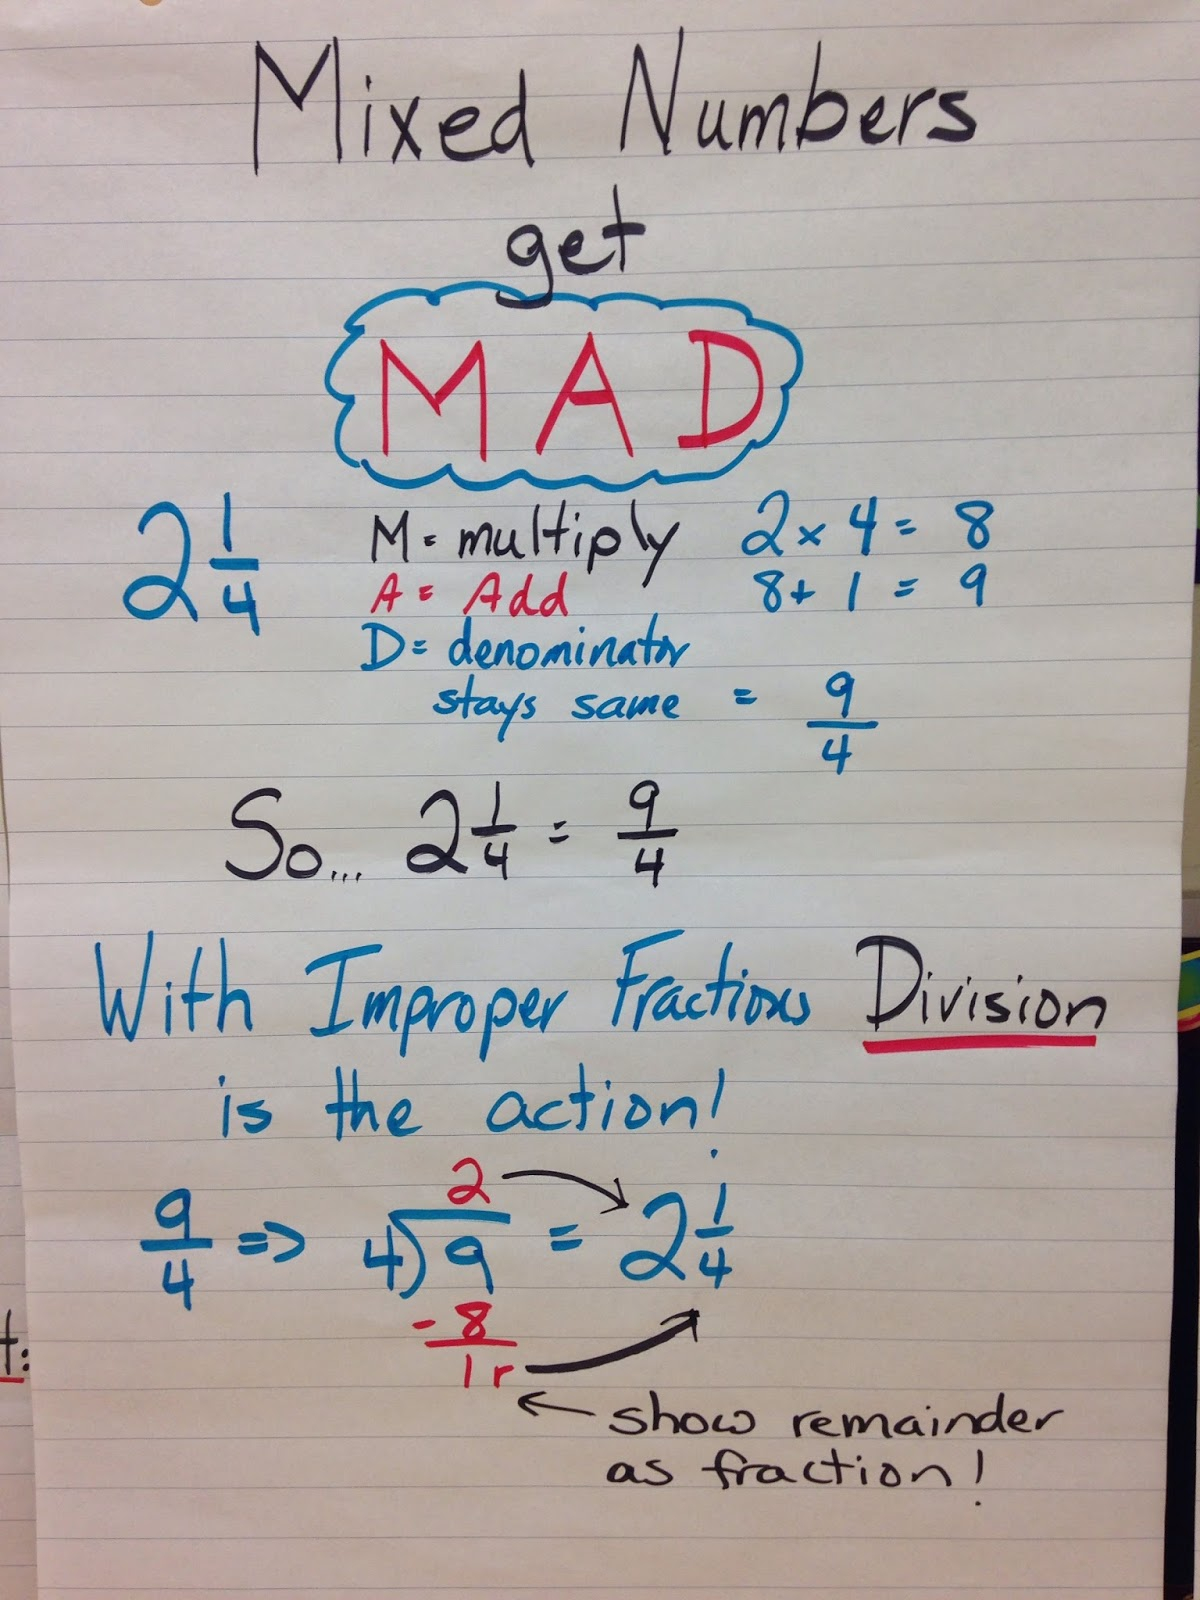 Mixed Numbers
get
MAD
2 1/4
M = multiply 2 x 4 = 8
A = Add 8 + 1 = 9
D = denominator
stays same = 9/4
So... 2 1/4 = 9/4
With Improper Fractions Division
is the action!
2
9/4 => 4)9 = 2 1/4
- 8
1 r
t:
show remainder
as fraction!